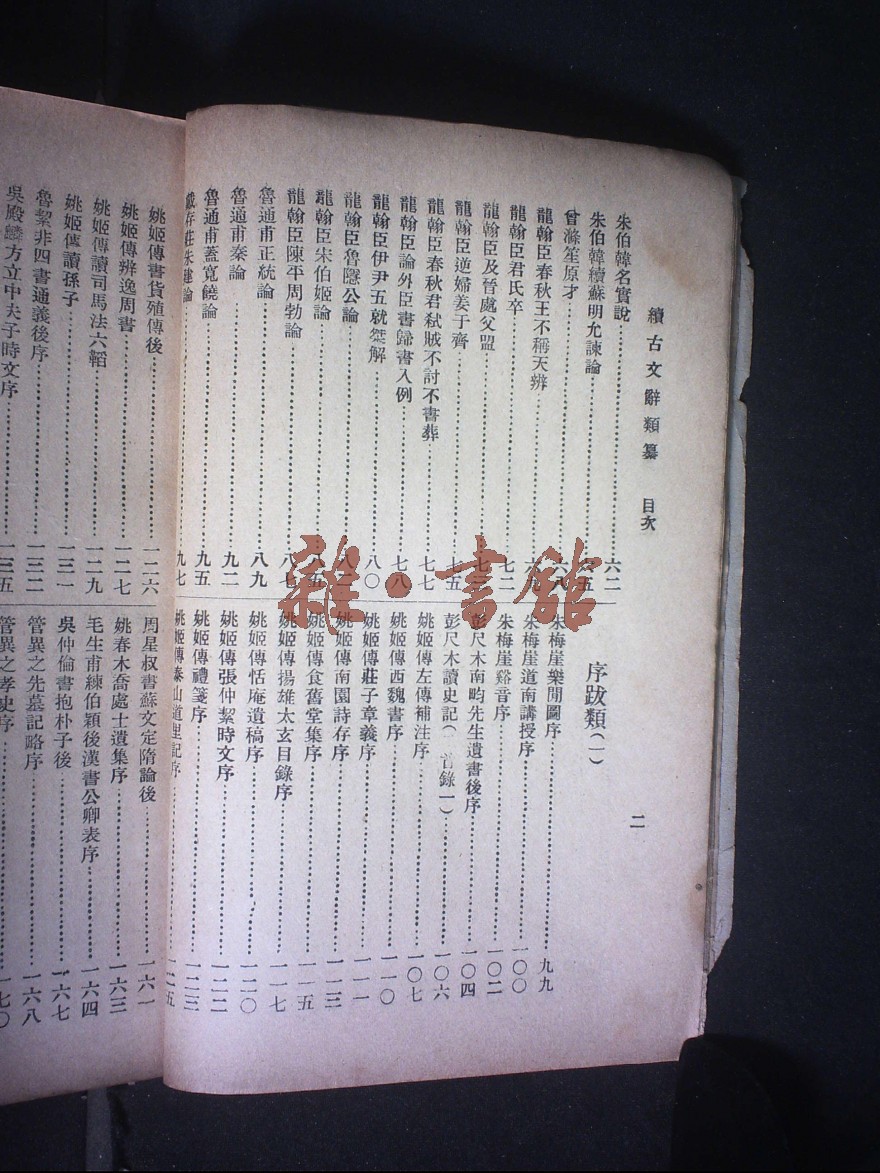 續古文辭類纂　目次
二
朱伯韓名實說 六二
朱伯韓續蘇明允諫論 六五
曾滌笙原才 六八
龍翰臣春秋王不稱天辨 六九
龍翰臣君氏卒 七二
龍翰臣及晉處父盟 七三
龍翰臣逆婦姜于齊 七五
龍翰臣春秋君弒賊不討不書葬 七七
龍翰臣論外臣書歸書入例 七八
龍翰臣伊尹五就桀解 八〇
龍翰臣魯隱公論 八二
龍翰臣宋伯姬論 八五
龍翰臣陳平周勃論 八七
魯通甫正統論 八九
魯通甫秦論 九二
魯通甫蓋寬饒論 九五
戴存莊朱建論 九七
序跋類（一）
朱梅崖樂閒圖序 九九
朱梅崖道南講授序 一〇〇
朱梅崖谿音序 一〇二
彭尺木南畇先生遺書後序 一〇四
彭尺木讀史記（一首錄一） 一〇六
姚姬傳左傳補注序 一〇七
姚姬傳西魏書序 一一〇
姚姬傳莊子章義序 一一一
姚姬傳南園詩存序 一一三
姚姬傳食舊堂集序 一一五
姚姬傳揚雄太玄目錄序 一一七
姚姬傳恬庵遺稿序 一二〇
姚姬傳張仲絜時文序 一二二
姚姬傳禮箋序 一二三
姚姬傳泰山道里記序 一二五
姚姬傳書貨殖傳後 一二六
姚姬傳辨逸周書 一二七
姚姬傳讀司馬法六韜 一二九
姚姬傳讀孫子 一三一
魯絜非四書通義後序 一三二
吳殿麟方立中夫子時文序 一三五
周星叔書蘇文定隋論後 一六一
姚春木喬處士遺集序 一六三
毛生甫練伯穎後漢書公卿表序 一六四
吳仲倫書抱朴子後 一六七
管異之先墓記略序 一六八
管異之孝史序 一七〇
雜·書館